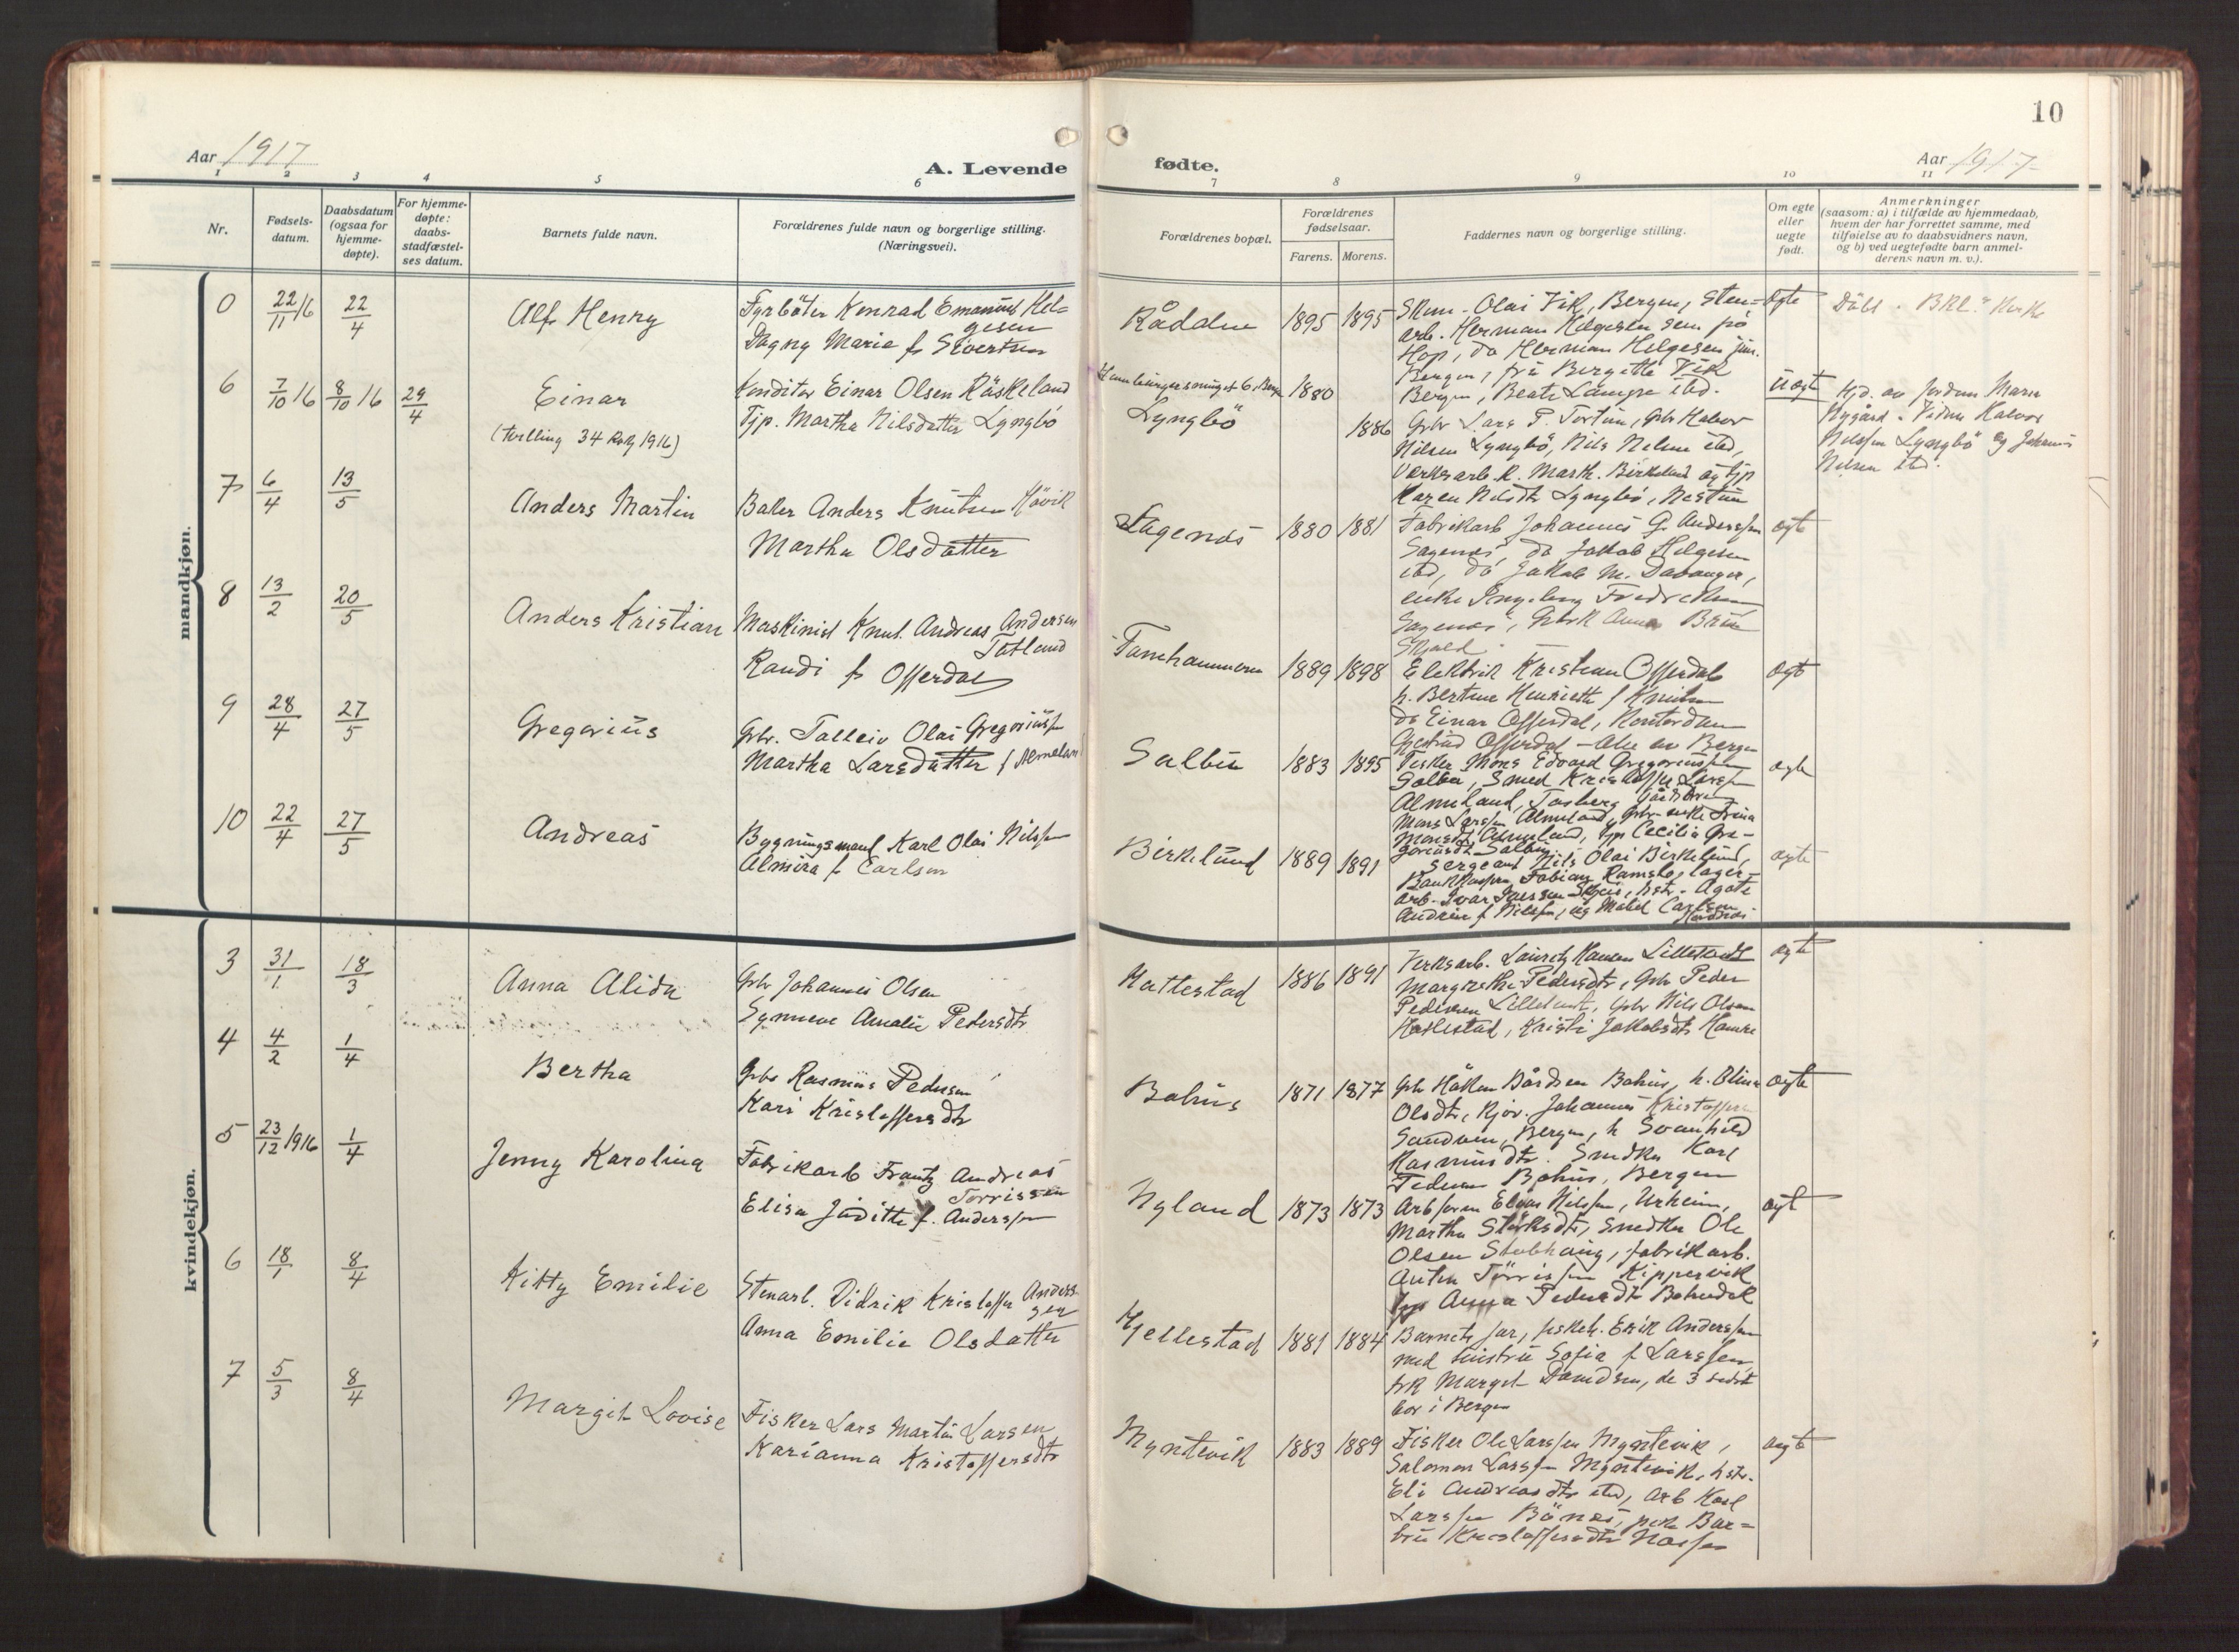 10
Aar 1917
A. Levende
fødte.
Aar 1917
1 2 3 4 5 6 7 8 9 10 11
Nr.
Fødsels-
datum.
Daabsdatum
(ogsaa for
hjemme-
døpte).
For hjemme-
døpte:
daabs-
stadfæstel-
ses datum.
Barnets fulde navn.
Forældrenes fulde navn og borgerlige stilling.
(Næringsvei).
Forældrenes bopæl.
Forældrenes
fødselsaar.
Farens. Morens.
Faddernes navn og borgerlige stilling.
Om egte
eller
uegte
født.
Anmerkninger
(saasom: a) i tilfælde av hjemmedaab,
hvem der har forrettet samme, med
tilføielse av to daabsvidners navn,
og b) ved uegtefødte barn anmel-
derens navn m. v.).
mandkjøn.
0 22/11 16 22/4 Alf Henry
Fyrböter Konrad Emanuel Hel=
gesen
Dagny Marie f. Sivertsen
Rådalen 1895 1895
Skom. Olai Vik, Bergen, Sten=
arb. Herman Helgesen sen på
Hop, do Herman Helgesen jun.
Bergen, frü Bergitte Vik
Bergen, Beate Lampe ibd.
egte
6 7/10 16 8/10 16 29/4 Einar
(tvilling 34 1916)
Konditor Einar Olsen Räskeland
Tjp. Martha Nilsdatter Lyngbö
1880
Lyngbö 1886
Gbr Lars P. Tortun, Gbr Halvor
Nilsen Lyngbö, Nils Nelsen ibd,
Verksarb. K. Marth. Birkeland og tjp
Karen Nilsdtr Lyngbö, Nestün
üegt
Hjd. av Jordm Maren
Nygård. Vidner Halvor
Nilssen Lyngbö og Johannes
Nilsen ibd.
7 6/4 13/5 Anders Martin
Baker Anders Knutsen Hövik
Martha Olsdatter
Sagenös 1880 1881
Fabrikarb Johannes G. Anderssen
Sagenes, do Jakob Helgesen
ibd, do Jakob M. Davanger,
enke Ingeborg Fredriksen
egte
8 13/2 20/5 Anders Kristian
Maskinist Knut Andreas Andersen
Totland
Randi f. Offerdal
Fanehammeren 1889 1898
Elektrik Kristian Offerdal
h. Bertine Henriette f Knutsen
do Einar Offerdal, Kontordam
Offerdal – Alle av Bergen
egte
9 28/4 27/5 Gregoriüs
Gbr. Talleiv Olai Gregoriüssen
Martha Larsdatter f Almeland
Salbü 1883 1895
Fisker Mons Edvard Gregoriussen
Salbu, Smed Kristoffer Larssen
Almeland,
Mons Larssen Almeland,
egte
10 22/4 27/5 Andreas
Bygningsmand Karl Olai Nilssen
Almira f. Carlsen
Birkelünd 1889 1891
Sergeant Nils Olai Birkelünd,
Fabian Ramslo, lager-
Andrine f Nilssen, og Mabel Carlsen
egte
kvindekjøn.
3 31/1 18/3 Anna Alida
Gbr Johannes Olsen
Synneve Amalie Pedersdtr
Hattestad 1886 1891
Verksarb. Lauritz Hansen Lilletvedt
Margrethe Pedersdtr, Gbr Peder
Pedersen Lilletvedt, Gbr Nils Olsen
Hattestad, Kristi Jakobsdtr Hamre
egte
4 4/2 1/4 Bertha
Gbr Rasmus Pedersen
Kari Kristoffersdtr
Bahüs 1871 1877
Gbr Håkon Bårdsen Bahus, h. Olina
Olsdtr, Kjör. Johannes Kristoffersen
Sandven, Bergen, h Svanhild
Rasmusdtr. Smedkn Karl
Pedersen Bahus, Bergen
egte
5 23/12 1916 1/4 Jenny Karolina
Fabrikarb Frantz Andreas
Torrissen
Elisa Jüditte f. Anderssen
Nyland 1873 1873
Arbform Elias Nilssen, Urheim,
Martha Störksdtr, Smedkn Ole
Olsen Stubhaüg, fabrikarb.
Anton Törrissen Kippersvik
tjp Anna Pedersdtr
egt
6 18/1 8/4 Kitty Emilie
Stenarb. Didrik Kristoffer Anders-
sen
Anna Emilie Olsdatter
Hjellestad 1881 1884
Barnets far, fiskeh. Erik Anderssen
med hustru Sofia f Larssen,
frk Margit Davidsen, de 3 sidste
bor i Bergen
7 5/3 8/4 Margit Lovise
Fisker Lars Martin Larsen
Karianna Kristoffersdtr
Myntevik 1883 1889
Fisker Ole Larssen Myntevik,
Salomon Larssen Myntevik, hstr.
Eli Andreasdtr ibd, Arb Karl
Larssen Bönes, pike Bar=
bru Kristoffersdtr
egte